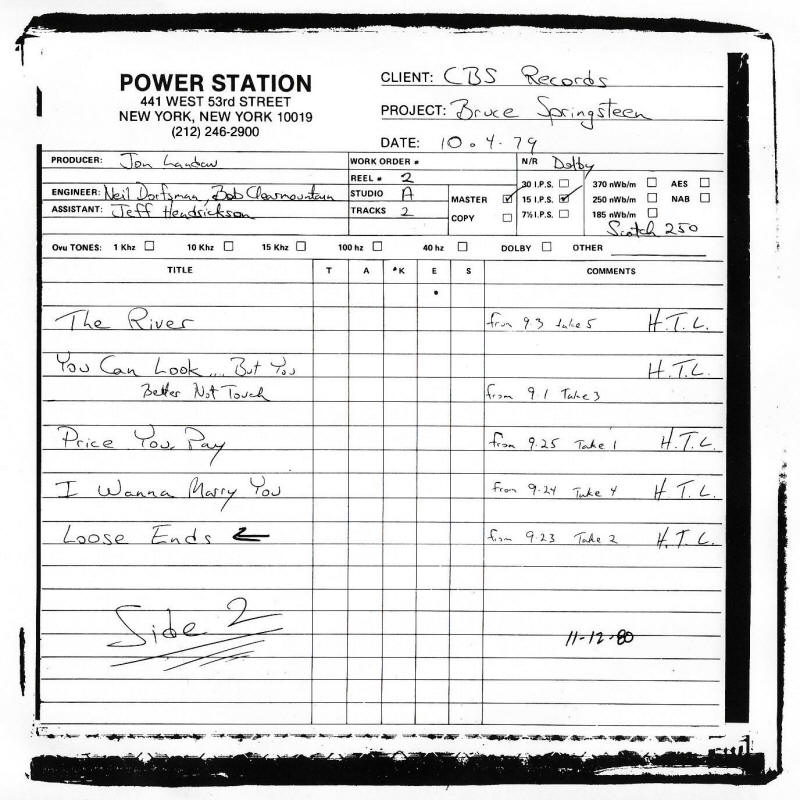 POWER STATION
441 WEST 53rd STREET
NEW YORK, NEW YORK 10019
(212) 246-2900
CLIENT: CBS Records
PROJECT: Bruce Springsteen
DATE: 10.4.79
PRODUCER: Jon Landau
ENGINEER: Neil Dorfsman, Bob Clearmountain
ASSISTANT: Jeff Hendrickson
WORK ORDER #
REEL # 2
STUDIO A
TRACKS 2
MASTER
COPY
N/R Dolby
30 I.P.S.
15 I.P.S.
7½ I.P.S.
370 nWb/m AES
250 nWb/m NAB
185 nWb/m
Scotch 250
Ovu TONES: 1 Khz 10 Khz 15 Khz 100 hz 40 hz DOLBY OTHER
TITLE T A K E S COMMENTS
The River from 9.3 take 5 H.T.L.
You Can Look .... But You H.T.L.
Better Not Touch from 9.1 Take 3
Price You Pay from 9.25 Take 1 H.T.L.
I Wanna Marry You from 9.24 Take 4 H.T.L.
Loose Ends ← from 9.23 Take 2 H.T.L.
Side 2
11-12-80